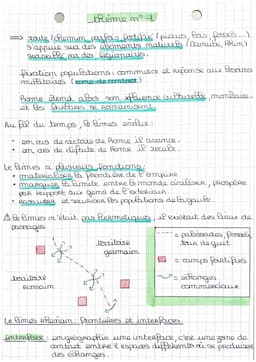 => route (chemin parfois fortifié (pieux, bois, fossés...)
s'appuie sur des éléments naturels (Danube, Rhin)
surveillé par des légionnaires.
fixation populations : commerce et réponse aux besoins
militaires (zone de contact)
Rome étend alors son influence culturelle, monétaire
et les structures se romanisent.
Au fil du temps, le limes évolue :
• en cas de victoire de Rome il avance.
• en cas de défaite de Rome il recule.
Le limes a plusieurs fonctions :
• matérialiser la frontière de l'empire
• marquer la limite entre le monde civilisé, prospère
par rapport aux gens de l'extérieur
• rassurer et sécuriser les populations de la Gaule
⚠ le limes n'était pas hermétique, il existait des lieux de
passages.
territoire
germain
territoire
romain
= palissades, fossés,
tours de guet
= camps fortifiés
= échanges
commerciaux
Le limes rhénan : frontières et interfaces.
interface : en géographie une interface, c'est une zone de
contact entre 2 espaces différents où se produisent
des échanges.